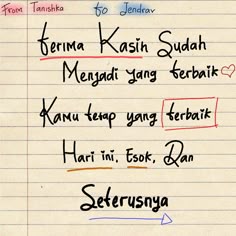 From Tanishka to Jendrav
Terima Kasih Sudah
Menjadi yang terbaik
Kamu tetap yang terbaik
Hari ini, Esok, Dan
Seterusnya